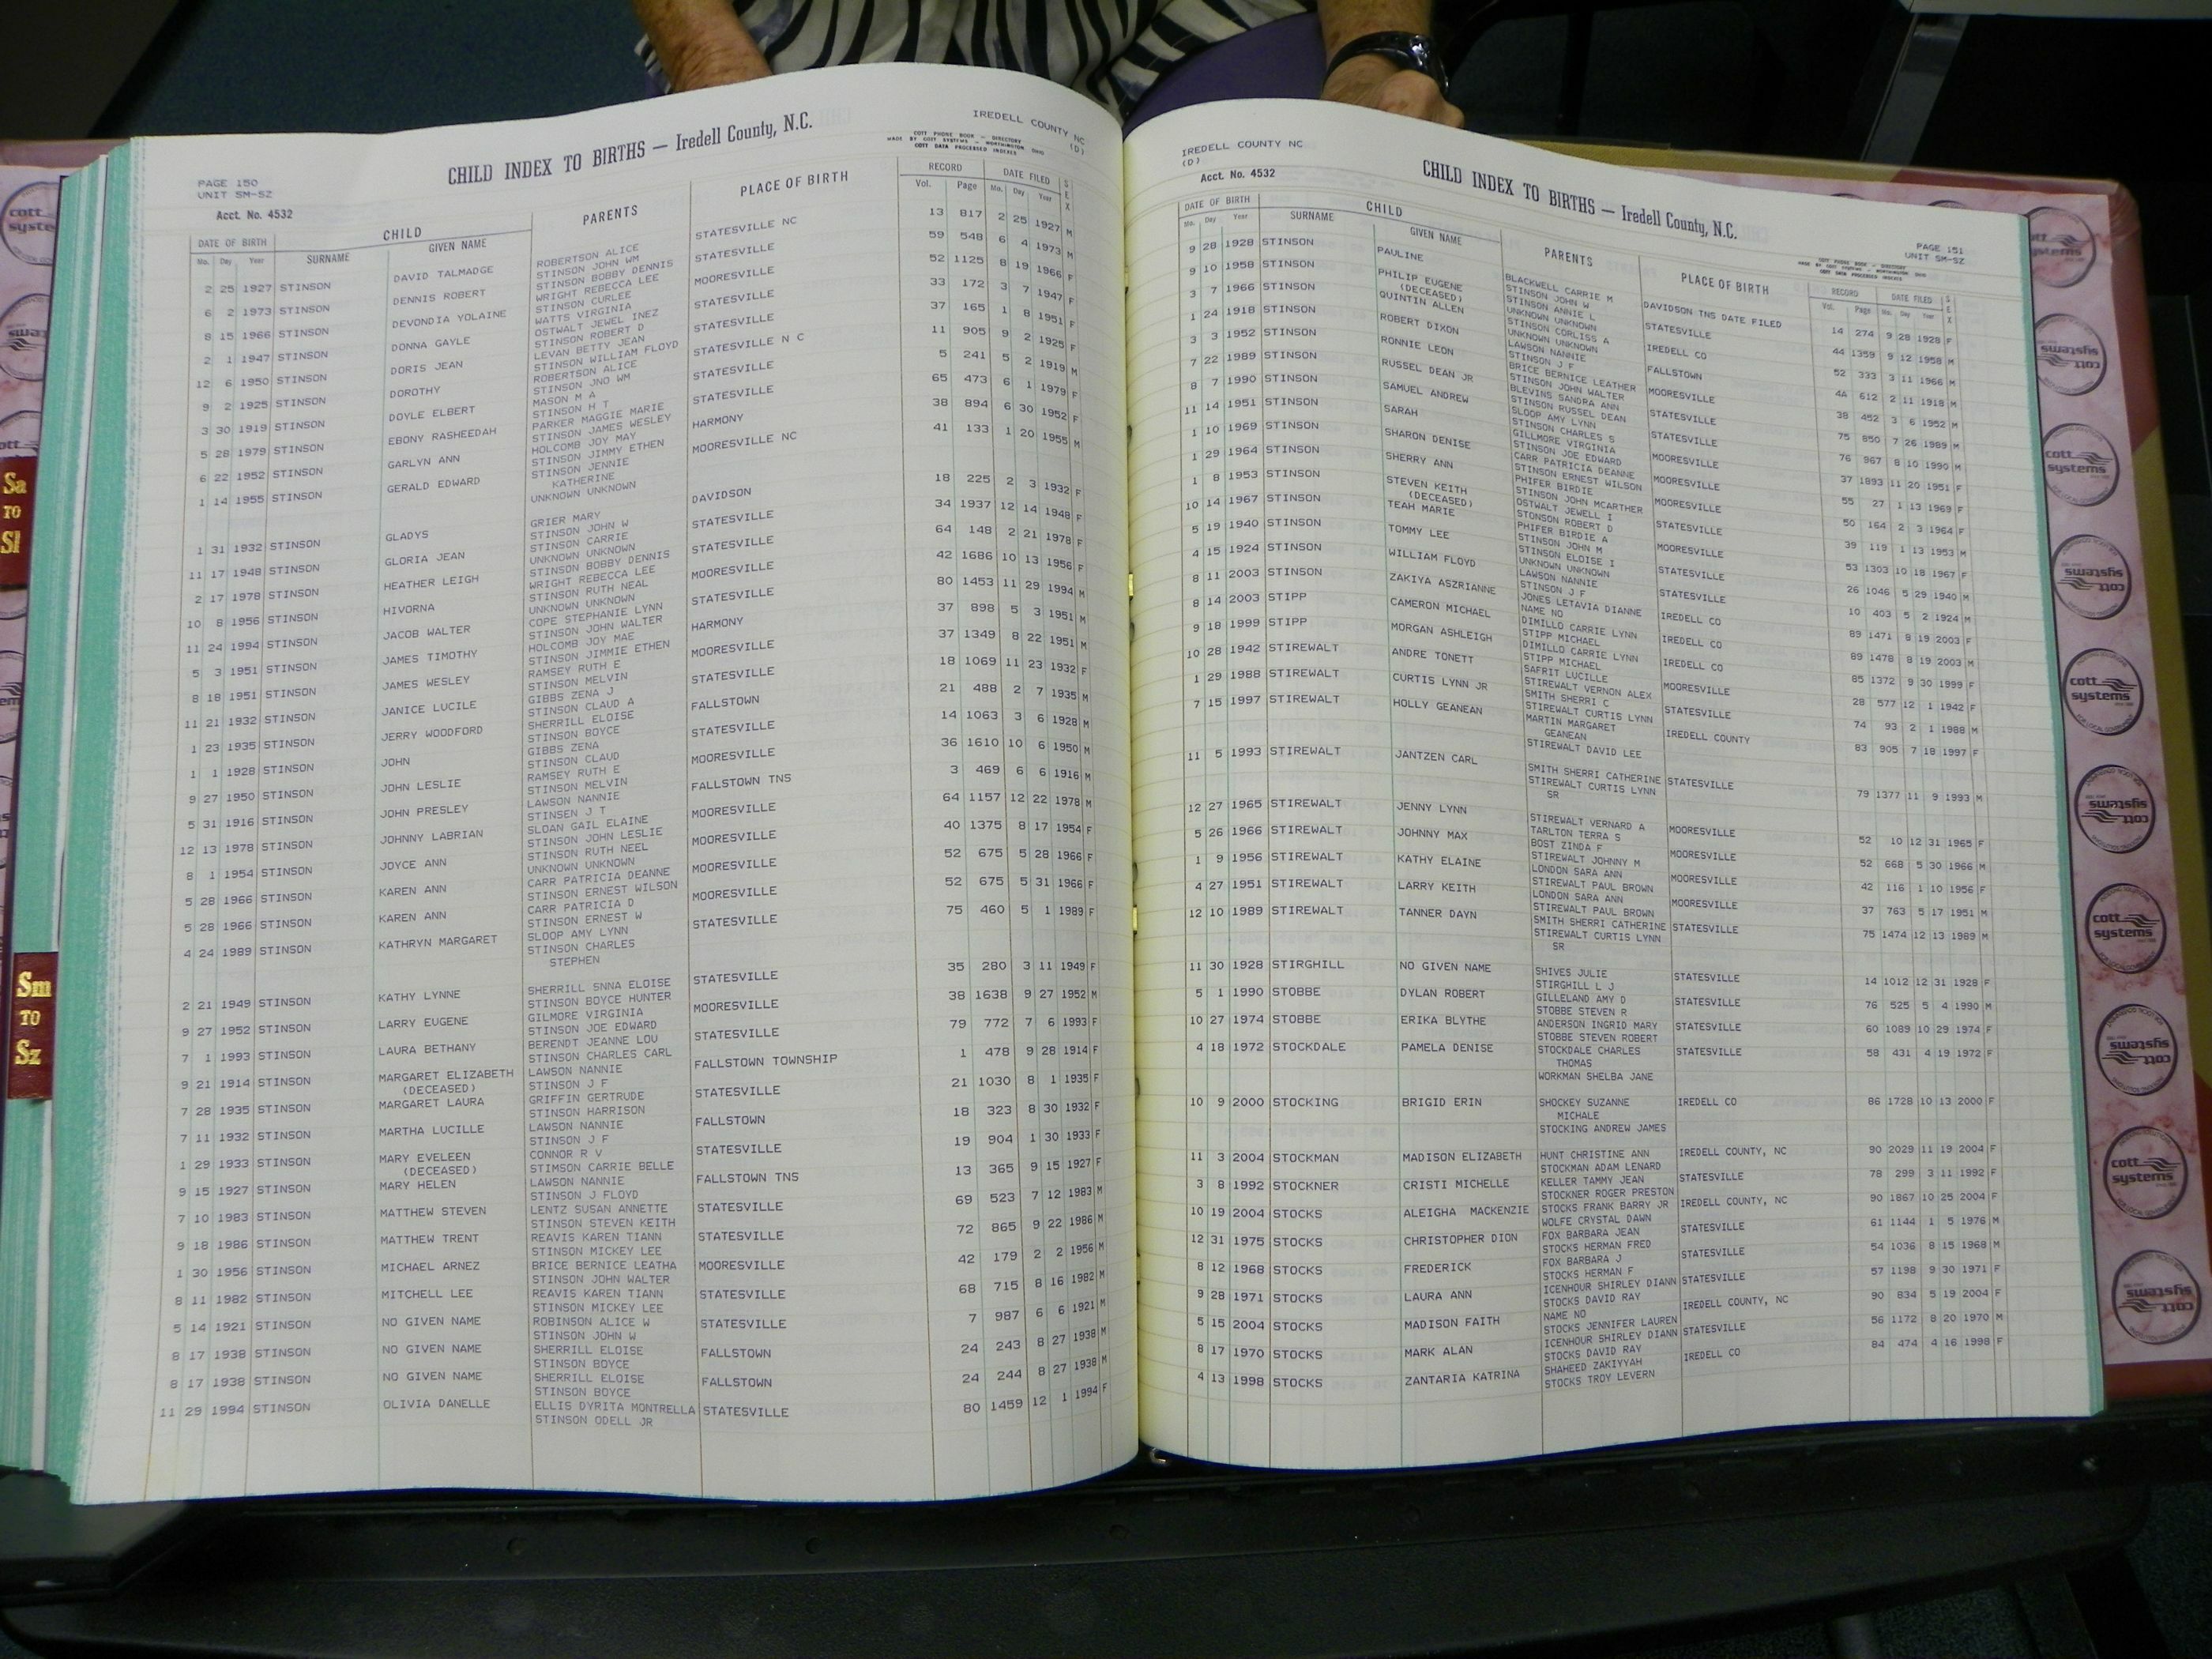 PAGE 150
UNIT SM-SZ
CHILD INDEX TO BIRTHS — Iredell County, N.C.
COTT PHONE BOOK — DIRECTORY
MADE BY COTT SYSTEMS — WORTHINGTON OHIO
COTT DATA PROCESSED INDEXES
IREDELL COUNTY NC
(D)
Acct. No. 4532
DATE OF BIRTH CHILD PARENTS PLACE OF BIRTH RECORD DATE FILED SEX
Mo. Day Year SURNAME GIVEN NAME Vol. Page Mo. Day Year
2 25 1927 STINSON DAVID TALMADGE ROBERTSON ALICE STATESVILLE NC 13 817 2 25 1927 M
STINSON JOHN WM
6 2 1973 STINSON DENNIS ROBERT STINSON BOBBY DENNIS STATESVILLE 59 548 6 4 1973 M
WRIGHT REBECCA LEE
8 15 1966 STINSON DEVONDIA YOLAINE STINSON CURLEE MOORESVILLE 52 1125 8 19 1966 F
WATTS VIRGINIA
2 1 1947 STINSON DONNA GAYLE OSTWALT JEWEL INEZ STATESVILLE 33 172 3 7 1947 F
STINSON ROBERT D
12 6 1950 STINSON DORIS JEAN LEVAN BETTY JEAN STATESVILLE 37 165 1 8 1951 F
STINSON WILLIAM FLOYD
9 2 1925 STINSON DOROTHY ROBERTSON ALICE STATESVILLE N C 11 905 9 2 1925 F
STINSON JNO WM
3 30 1919 STINSON DOYLE ELBERT MASON M A STATESVILLE 5 241 5 2 1919 M
STINSON H T
5 28 1979 STINSON EBONY RASHEEDAH PARKER MAGGIE MARIE STATESVILLE 65 473 6 1 1979 F
STINSON JAMES WESLEY
6 22 1952 STINSON GARLYN ANN HOLCOMB JOY MAY HARMONY 38 894 6 30 1952 F
STINSON JIMMY ETHEN
1 14 1955 STINSON GERALD EDWARD STINSON JENNIE MOORESVILLE NC 41 133 1 20 1955 M
KATHERINE
UNKNOWN UNKNOWN
1 31 1932 STINSON GLADYS GRIER MARY DAVIDSON 18 225 2 3 1932 F
STINSON JOHN W
11 17 1948 STINSON GLORIA JEAN STINSON CARRIE STATESVILLE 34 1937 12 14 1948 F
UNKNOWN UNKNOWN
2 17 1978 STINSON HEATHER LEIGH STINSON BOBBY DENNIS STATESVILLE 64 148 2 21 1978 F
WRIGHT REBECCA LEE
10 8 1956 STINSON HIVORNA STINSON RUTH NEAL MOORESVILLE 42 1686 10 13 1956 F
UNKNOWN UNKNOWN
11 24 1994 STINSON JACOB WALTER COPE STEPHANIE LYNN STATESVILLE 80 1453 11 29 1994 M
STINSON JOHN WALTER
5 3 1951 STINSON JAMES TIMOTHY HOLCOMB JOY MAE HARMONY 37 898 5 3 1951 M
STINSON JIMMIE ETHEN
8 18 1951 STINSON JAMES WESLEY RAMSEY RUTH E MOORESVILLE 37 1349 8 22 1951 M
STINSON MELVIN
11 21 1932 STINSON JANICE LUCILE GIBBS ZENA J STATESVILLE 18 1069 11 23 1932 F
STINSON CLAUD A
1 23 1935 STINSON JERRY WOODFORD SHERRILL ELOISE FALLSTOWN 21 488 2 7 1935 M
STINSON BOYCE
1 1 1928 STINSON JOHN GIBBS ZENA STATESVILLE 14 1063 3 6 1928 M
STINSON CLAUD
9 27 1950 STINSON JOHN LESLIE RAMSEY RUTH E MOORESVILLE 36 1610 10 6 1950 M
STINSON MELVIN
5 31 1916 STINSON JOHN PRESLEY LAWSON NANNIE FALLSTOWN TNS 3 469 6 6 1916 M
STINSEN J T
12 13 1978 STINSON JOHNNY LABRIAN SLOAN GAIL ELAINE MOORESVILLE 64 1157 12 22 1978 M
STINSON JOHN LESLIE
8 1 1954 STINSON JOYCE ANN STINSON RUTH NEEL MOORESVILLE 40 1375 8 17 1954 F
UNKNOWN UNKNOWN
5 28 1966 STINSON KAREN ANN CARR PATRICIA DEANNE MOORESVILLE 52 675 5 28 1966 F
STINSON ERNEST WILSON
5 28 1966 STINSON KAREN ANN CARR PATRICIA D MOORESVILLE 52 675 5 31 1966 F
STINSON ERNEST W
4 24 1989 STINSON KATHRYN MARGARET SLOOP AMY LYNN STATESVILLE 75 460 5 1 1989 F
STINSON CHARLES
STEPHEN
2 21 1949 STINSON KATHY LYNNE SHERRILL SNNA ELOISE STATESVILLE 35 280 3 11 1949 F
STINSON BOYCE HUNTER
9 27 1952 STINSON LARRY EUGENE GILMORE VIRGINIA MOORESVILLE 38 1638 9 27 1952 M
STINSON JOE EDWARD
7 1 1993 STINSON LAURA BETHANY BERENDT JEANNE LOU STATESVILLE 79 772 7 6 1993 F
STINSON CHARLES CARL
9 21 1914 STINSON MARGARET ELIZABETH LAWSON NANNIE FALLSTOWN TOWNSHIP 1 478 9 28 1914 F
(DECEASED) STINSON J F
7 28 1935 STINSON MARGARET LAURA GRIFFIN GERTRUDE STATESVILLE 21 1030 8 1 1935 F
STINSON HARRISON
7 11 1932 STINSON MARTHA LUCILLE LAWSON NANNIE FALLSTOWN 18 323 8 30 1932 F
STINSON J F
1 29 1933 STINSON MARY EVELEEN CONNOR R V STATESVILLE 19 904 1 30 1933 F
(DECEASED) STIMSON CARRIE BELLE
9 15 1927 STINSON MARY HELEN LAWSON NANNIE FALLSTOWN TNS 13 365 9 15 1927 F
STINSON J FLOYD
7 10 1983 STINSON MATTHEW STEVEN LENTZ SUSAN ANNETTE STATESVILLE 69 523 7 12 1983 M
STINSON STEVEN KEITH
9 18 1986 STINSON MATTHEW TRENT REAVIS KAREN TIANN STATESVILLE 72 865 9 22 1986 M
STINSON MICKEY LEE
1 30 1956 STINSON MICHAEL ARNEZ BRICE BERNICE LEATHA MOORESVILLE 42 179 2 2 1956 M
STINSON JOHN WALTER
8 11 1982 STINSON MITCHELL LEE REAVIS KAREN TIANN STATESVILLE 68 715 8 16 1982 M
STINSON MICKEY LEE
5 14 1921 STINSON NO GIVEN NAME ROBINSON ALICE W STATESVILLE 7 987 6 6 1921 M
STINSON JOHN W
8 17 1938 STINSON NO GIVEN NAME SHERRILL ELOISE FALLSTOWN 24 243 8 27 1938 M
STINSON BOYCE
8 17 1938 STINSON NO GIVEN NAME SHERRILL ELOISE FALLSTOWN 24 244 8 27 1938 M
STINSON BOYCE
11 29 1994 STINSON OLIVIA DANELLE ELLIS DYRITA MONTRELLA STATESVILLE 80 1459 12 1 1994 F
STINSON ODELL JR
IREDELL COUNTY NC
(D)
Acct. No. 4532
CHILD INDEX TO BIRTHS — Iredell County, N.C.
PAGE 151
UNIT SM-SZ
COTT PHONE BOOK — DIRECTORY
MADE BY COTT SYSTEMS — WORTHINGTON OHIO
COTT DATA PROCESSED INDEXES
DATE OF BIRTH CHILD PARENTS PLACE OF BIRTH RECORD DATE FILED SEX
Mo. Day Year SURNAME GIVEN NAME Vol. Page Mo. Day Year
9 28 1928 STINSON PAULINE BLACKWELL CARRIE M DAVIDSON TNS DATE FILED 14 274 9 28 1928 F
STINSON JOHN W
9 10 1958 STINSON PHILIP EUGENE STINSON ANNIE L STATESVILLE 44 1359 9 12 1958 M
(DECEASED) UNKNOWN UNKNOWN
3 7 1966 STINSON QUINTIN ALLEN STINSON CORLISS A IREDELL CO 52 333 3 11 1966 M
UNKNOWN UNKNOWN
1 24 1918 STINSON ROBERT DIXON LAWSON NANNIE FALLSTOWN 4A 612 2 11 1918 M
STINSON J F
3 3 1952 STINSON RONNIE LEON BRICE BERNICE LEATHER MOORESVILLE 38 452 3 6 1952 M
STINSON JOHN WALTER
7 22 1989 STINSON RUSSEL DEAN JR BLEVINS SANDRA ANN STATESVILLE 75 850 7 26 1989 M
STINSON RUSSEL DEAN
8 7 1990 STINSON SAMUEL ANDREW SLOOP AMY LYNN STATESVILLE 76 967 8 10 1990 M
STINSON CHARLES S
11 14 1951 STINSON SARAH GILLMORE VIRGINIA MOORESVILLE 37 1893 11 20 1951 F
STINSON JOE EDWARD
1 10 1969 STINSON SHARON DENISE CARR PATRICIA DEANNE MOORESVILLE 55 27 1 13 1969 F
STINSON ERNEST WILSON
1 29 1964 STINSON SHERRY ANN PHIFER BIRDIE MOORESVILLE 50 164 2 3 1964 F
STINSON JOHN MCARTHER
1 8 1953 STINSON STEVEN KEITH OSTWALT JEWELL I STATESVILLE 39 119 1 13 1953 M
(DECEASED) STONSON ROBERT D
10 14 1967 STINSON TEAH MARIE PHIFER BIRDIE A MOORESVILLE 53 1303 10 18 1967 F
STINSON JOHN M
5 19 1940 STINSON TOMMY LEE STINSON ELOISE I STATESVILLE 26 1046 5 29 1940 M
UNKNOWN UNKNOWN
4 15 1924 STINSON WILLIAM FLOYD LAWSON NANNIE STATESVILLE 10 403 5 2 1924 M
STINSON J F
8 11 2003 STINSON ZAKIYA ASZRIANNE JONES LETAVIA DIANNE IREDELL CO 89 1471 8 19 2003 F
NAME NO
8 14 2003 STIPP CAMERON MICHAEL DIMILLO CARRIE LYNN IREDELL CO 89 1478 8 19 2003 M
STIPP MICHAEL
9 18 1999 STIPP MORGAN ASHLEIGH DIMILLO CARRIE LYNN IREDELL CO 85 1372 9 30 1999 F
STIPP MICHAEL
10 28 1942 STIREWALT ANDRE TONETT SAFRIT LUCILLE MOORESVILLE 28 577 12 1 1942 F
STIREWALT VERNON ALEX
1 29 1988 STIREWALT CURTIS LYNN JR SMITH SHERRI C STATESVILLE 74 93 2 1 1988 M
STIREWALT CURTIS LYNN
7 15 1997 STIREWALT HOLLY GEANEAN MARTIN MARGARET IREDELL COUNTY 83 905 7 18 1997 F
GEANEAN
STIREWALT DAVID LEE
11 5 1993 STIREWALT JANTZEN CARL SMITH SHERRI CATHERINE STATESVILLE 79 1377 11 9 1993 M
STIREWALT CURTIS LYNN
SR
12 27 1965 STIREWALT JENNY LYNN STIREWALT VERNARD A MOORESVILLE 52 10 12 31 1965 F
TARLTON TERRA S
5 26 1966 STIREWALT JOHNNY MAX BOST ZINDA F MOORESVILLE 52 668 5 30 1966 M
STIREWALT JOHNNY M
1 9 1956 STIREWALT KATHY ELAINE LONDON SARA ANN MOORESVILLE 42 116 1 10 1956 F
STIREWALT PAUL BROWN
4 27 1951 STIREWALT LARRY KEITH LONDON SARA ANN MOORESVILLE 37 763 5 17 1951 M
STIREWALT PAUL BROWN
12 10 1989 STIREWALT TANNER DAYN SMITH SHERRI CATHERINE STATESVILLE 75 1474 12 13 1989 M
STIREWALT CURTIS LYNN
SR
11 30 1928 STIRGHILL NO GIVEN NAME SHIVES JULIE STATESVILLE 14 1012 12 31 1928 F
STIRGHILL L J
5 1 1990 STOBBE DYLAN ROBERT GILLELAND AMY D STATESVILLE 76 525 5 4 1990 M
STOBBE STEVEN R
10 27 1974 STOBBE ERIKA BLYTHE ANDERSON INGRID MARY STATESVILLE 60 1089 10 29 1974 F
STOBBE STEVEN ROBERT
4 18 1972 STOCKDALE PAMELA DENISE STOCKDALE CHARLES STATESVILLE 58 431 4 19 1972 F
THOMAS
WORKMAN SHELBA JANE
10 9 2000 STOCKING BRIGID ERIN SHOCKEY SUZANNE IREDELL CO 86 1728 10 13 2000 F
MICHALE
STOCKING ANDREW JAMES
11 3 2004 STOCKMAN MADISON ELIZABETH HUNT CHRISTINE ANN IREDELL COUNTY, NC 90 2029 11 19 2004 F
STOCKMAN ADAM LENARD
3 8 1992 STOCKNER CRISTI MICHELLE KELLER TAMMY JEAN STATESVILLE 78 299 3 11 1992 F
STOCKNER ROGER PRESTON
10 19 2004 STOCKS ALEIGHA MACKENZIE STOCKS FRANK BARRY JR IREDELL COUNTY, NC 90 1867 10 25 2004 F
WOLFE CRYSTAL DAWN
12 31 1975 STOCKS CHRISTOPHER DION FOX BARBARA JEAN STATESVILLE 61 1144 1 5 1976 M
STOCKS HERMAN FRED
8 12 1968 STOCKS FREDERICK FOX BARBARA J STATESVILLE 54 1036 8 15 1968 M
STOCKS HERMAN F
9 28 1971 STOCKS LAURA ANN ICENHOUR SHIRLEY DIANN STATESVILLE 57 1198 9 30 1971 F
STOCKS DAVID RAY
5 15 2004 STOCKS MADISON FAITH NAME NO IREDELL COUNTY, NC 90 834 5 19 2004 F
STOCKS JENNIFER LAUREN
8 17 1970 STOCKS MARK ALAN ICENHOUR SHIRLEY DIANN STATESVILLE 56 1172 8 20 1970 M
STOCKS DAVID RAY
4 13 1998 STOCKS ZANTARIA KATRINA SHAHEED ZAKIYYAH IREDELL CO 84 474 4 16 1998 F
STOCKS TROY LEVERN
Sa
TO
Sl
Sm
TO
Sz
cott
systems